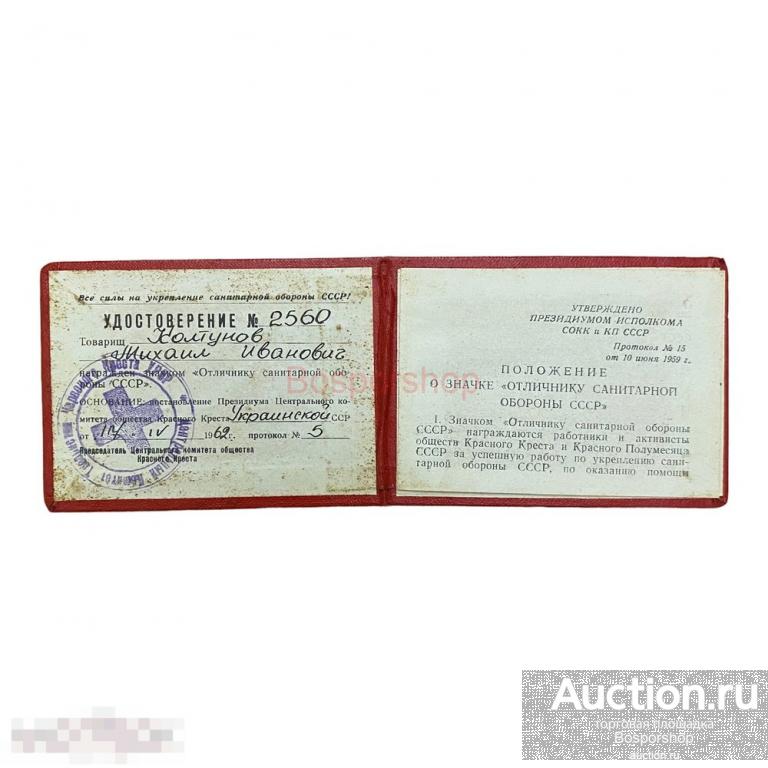 Все силы на укрепление санитарной обороны СССР!
УДОСТОВЕРЕНИЕ № 2560
Товарищ Колтунов
Михаил Иванович
награжден значком «Отличнику санитарной обо-
роны СССР».
ОСНОВАНИЕ: постановление Президиума Центрального ко-
митета общества Красного Креста Украинской ССР
от IV 1962 г. протокол № 5
Председатель Центрального комитета общества
Красного Креста
УТВЕРЖДЕНО
ПРЕЗИДИУМОМ ИСПОЛКОМА
СОКК и КП СССР
Протокол № 15
от 10 июня 1959 г.
ПОЛОЖЕНИЕ
О ЗНАЧКЕ «ОТЛИЧНИКУ САНИТАРНОЙ
ОБОРОНЫ СССР»
1. Значком «Отличнику санитарной обороны
СССР» награждаются работники и активисты
обществ Красного Креста и Красного Полумесяца
СССР за успешную работу по укреплению сани-
тарной обороны СССР, по оказанию помощи
Bosporshop
Auction.ru
торговая площадка
Bosporshop
au.ru